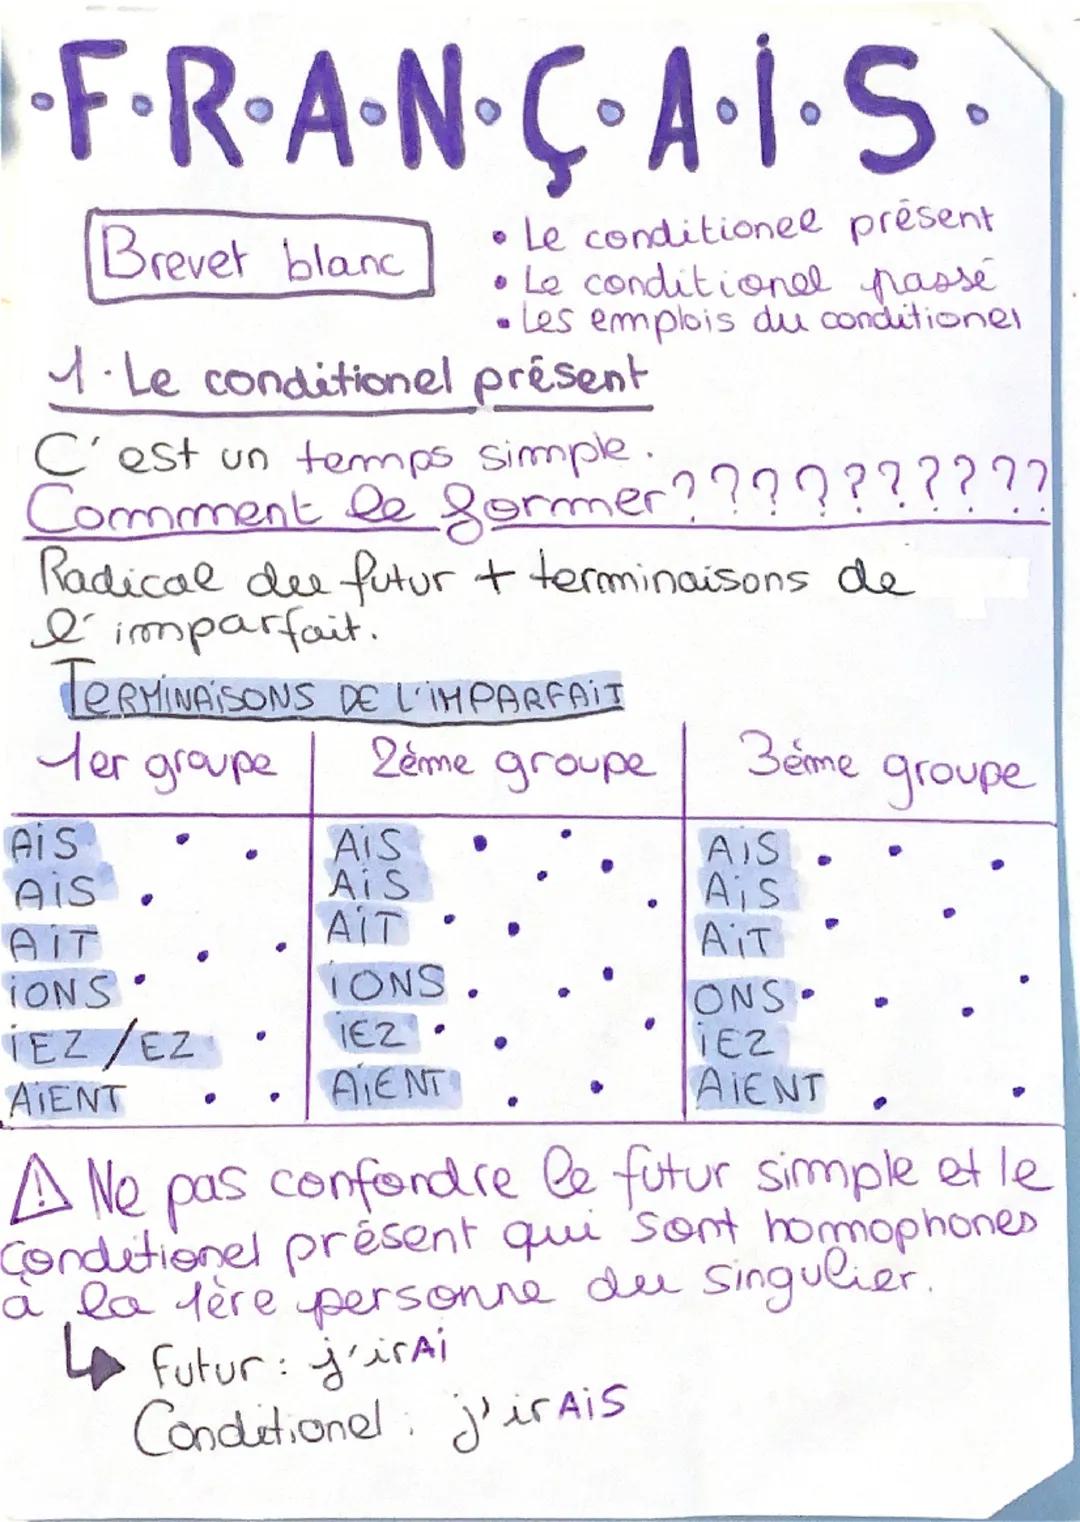 ·F·R·A·N·Ç·A·i·S·
Brevet blanc
• Le conditionel présent
• Le conditionel passé
• Les emplois du conditionel
1. Le conditionel présent
C'est un temps simple.
Comment le former??????????
Radical du futur + terminaisons de
l'imparfait.
TERMINAISONS DE L'IMPARFAIT
1er groupe 2ème groupe 3ème groupe
AiS AiS AiS
AiS AiS AiS
AiT AiT AiT
iONS iONS ONS
iEZ/EZ iEZ iEZ
AiENT AiENT AiENT
⚠ Ne pas confondre le futur simple et le
conditionel présent qui sont homophones
à la 1ère personne du singulier.
↳ Futur : j'irAi
Conditionel : j'irAiS